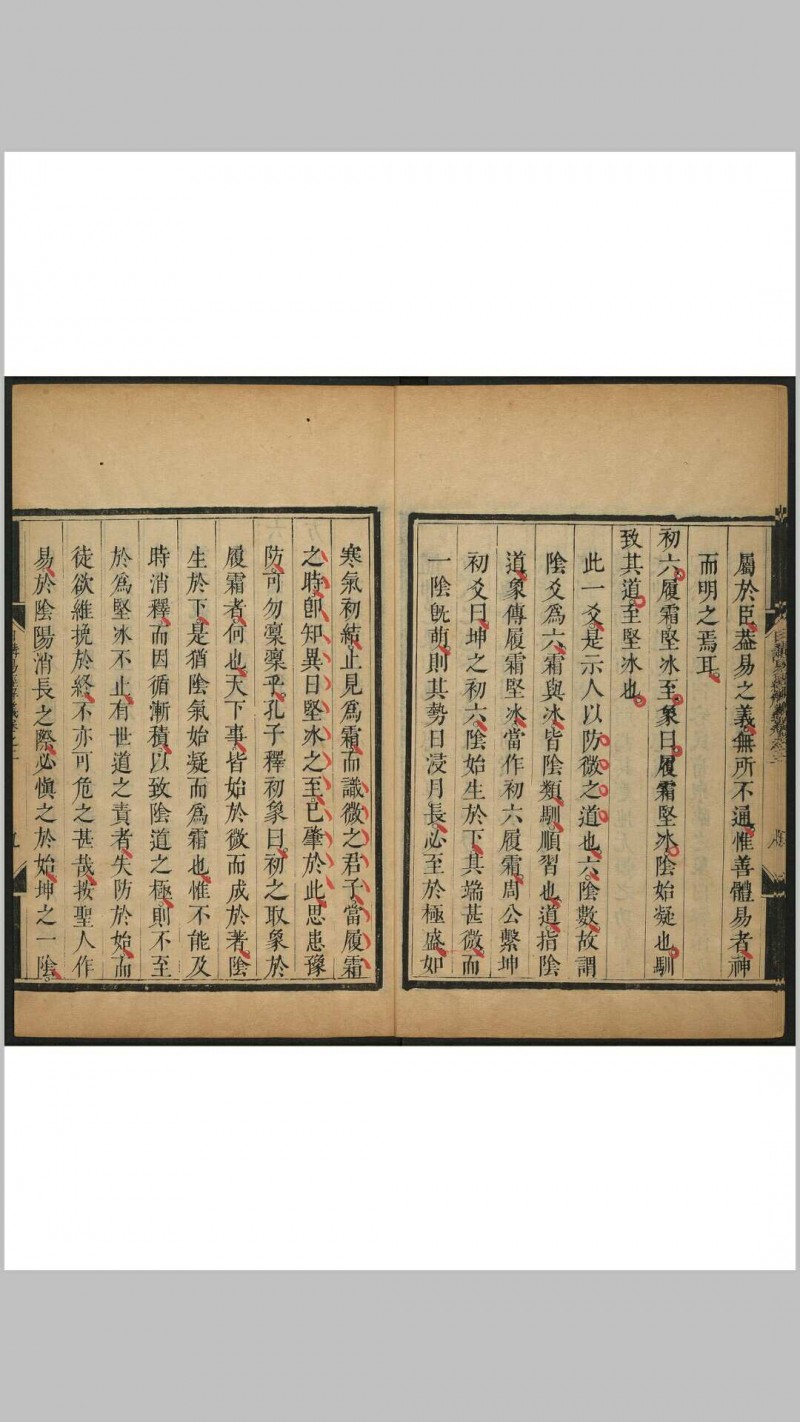 屬於臣葢易之義無所不通惟善體易者神
而明之焉耳
初六履霜堅冰至象曰履霜堅冰陰始凝也馴
致其道至堅冰也
此一爻是示人以防微之道也六陰數故謂
陰爻爲六霜與冰皆陰類馴順習也道指陰
道象傳履霜堅冰當作初六履霜周公繫坤
初爻曰坤之初六陰始生於下其端甚微而
一陰旣萌則其勢日浸月長必至於極盛如
寒氣初結止見爲霜而識微之君子當履霜
之時卽知異日堅冰之至已肇於此思患豫
防可勿稟稟乎孔子釋初象曰初之取象於
履霜者何也天下事皆始於微而成於著陰
生於下是猶陰氣始凝而爲霜也惟不能及
時消釋而因循漸積以致陰道之極則不至
於爲堅冰不止有世道之責者失防於始而
徒欲維挽於終不亦可危之甚哉按聖人作
易於陰陽消長之際必愼之於始坤之一陰